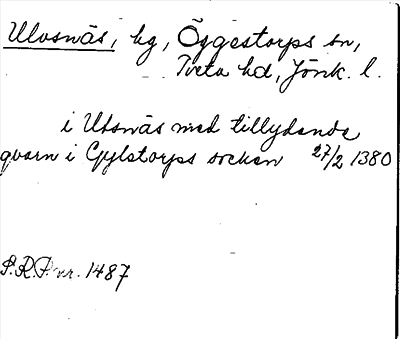 Ulvsnäs, hg, Öggestorps sn,
Tveta hd, Jönk. l.
i Ulsnäs med tillydande
qvarn i Gylstorps socken 27/2 1380
S.R.P. nr. 1487